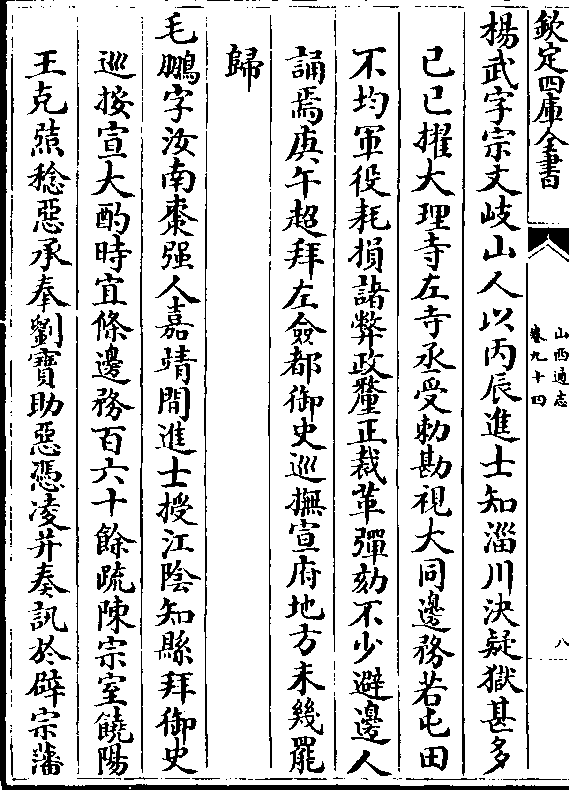 欽定四庫全書
山西通志
卷九十四
八
楊武字宗文岐山人以丙辰進士知淄川決疑獄甚多
己巳擢大理寺左寺丞受勅勘視大同邊務若屯田
不均軍役耗損諸弊政釐正裁革彈劾不少避邊人
誦焉庚午超拜左僉都御史巡撫宣府地方未幾罷
歸
毛鵬字汝南棗强人嘉靖間進士授江陰知縣拜御史
巡按宣大酌時宜條邊務百六十餘疏陳宗室饒陽
王克𤌻稔惡承奉劉寶助惡憑凌并奏訊於辟宗藩